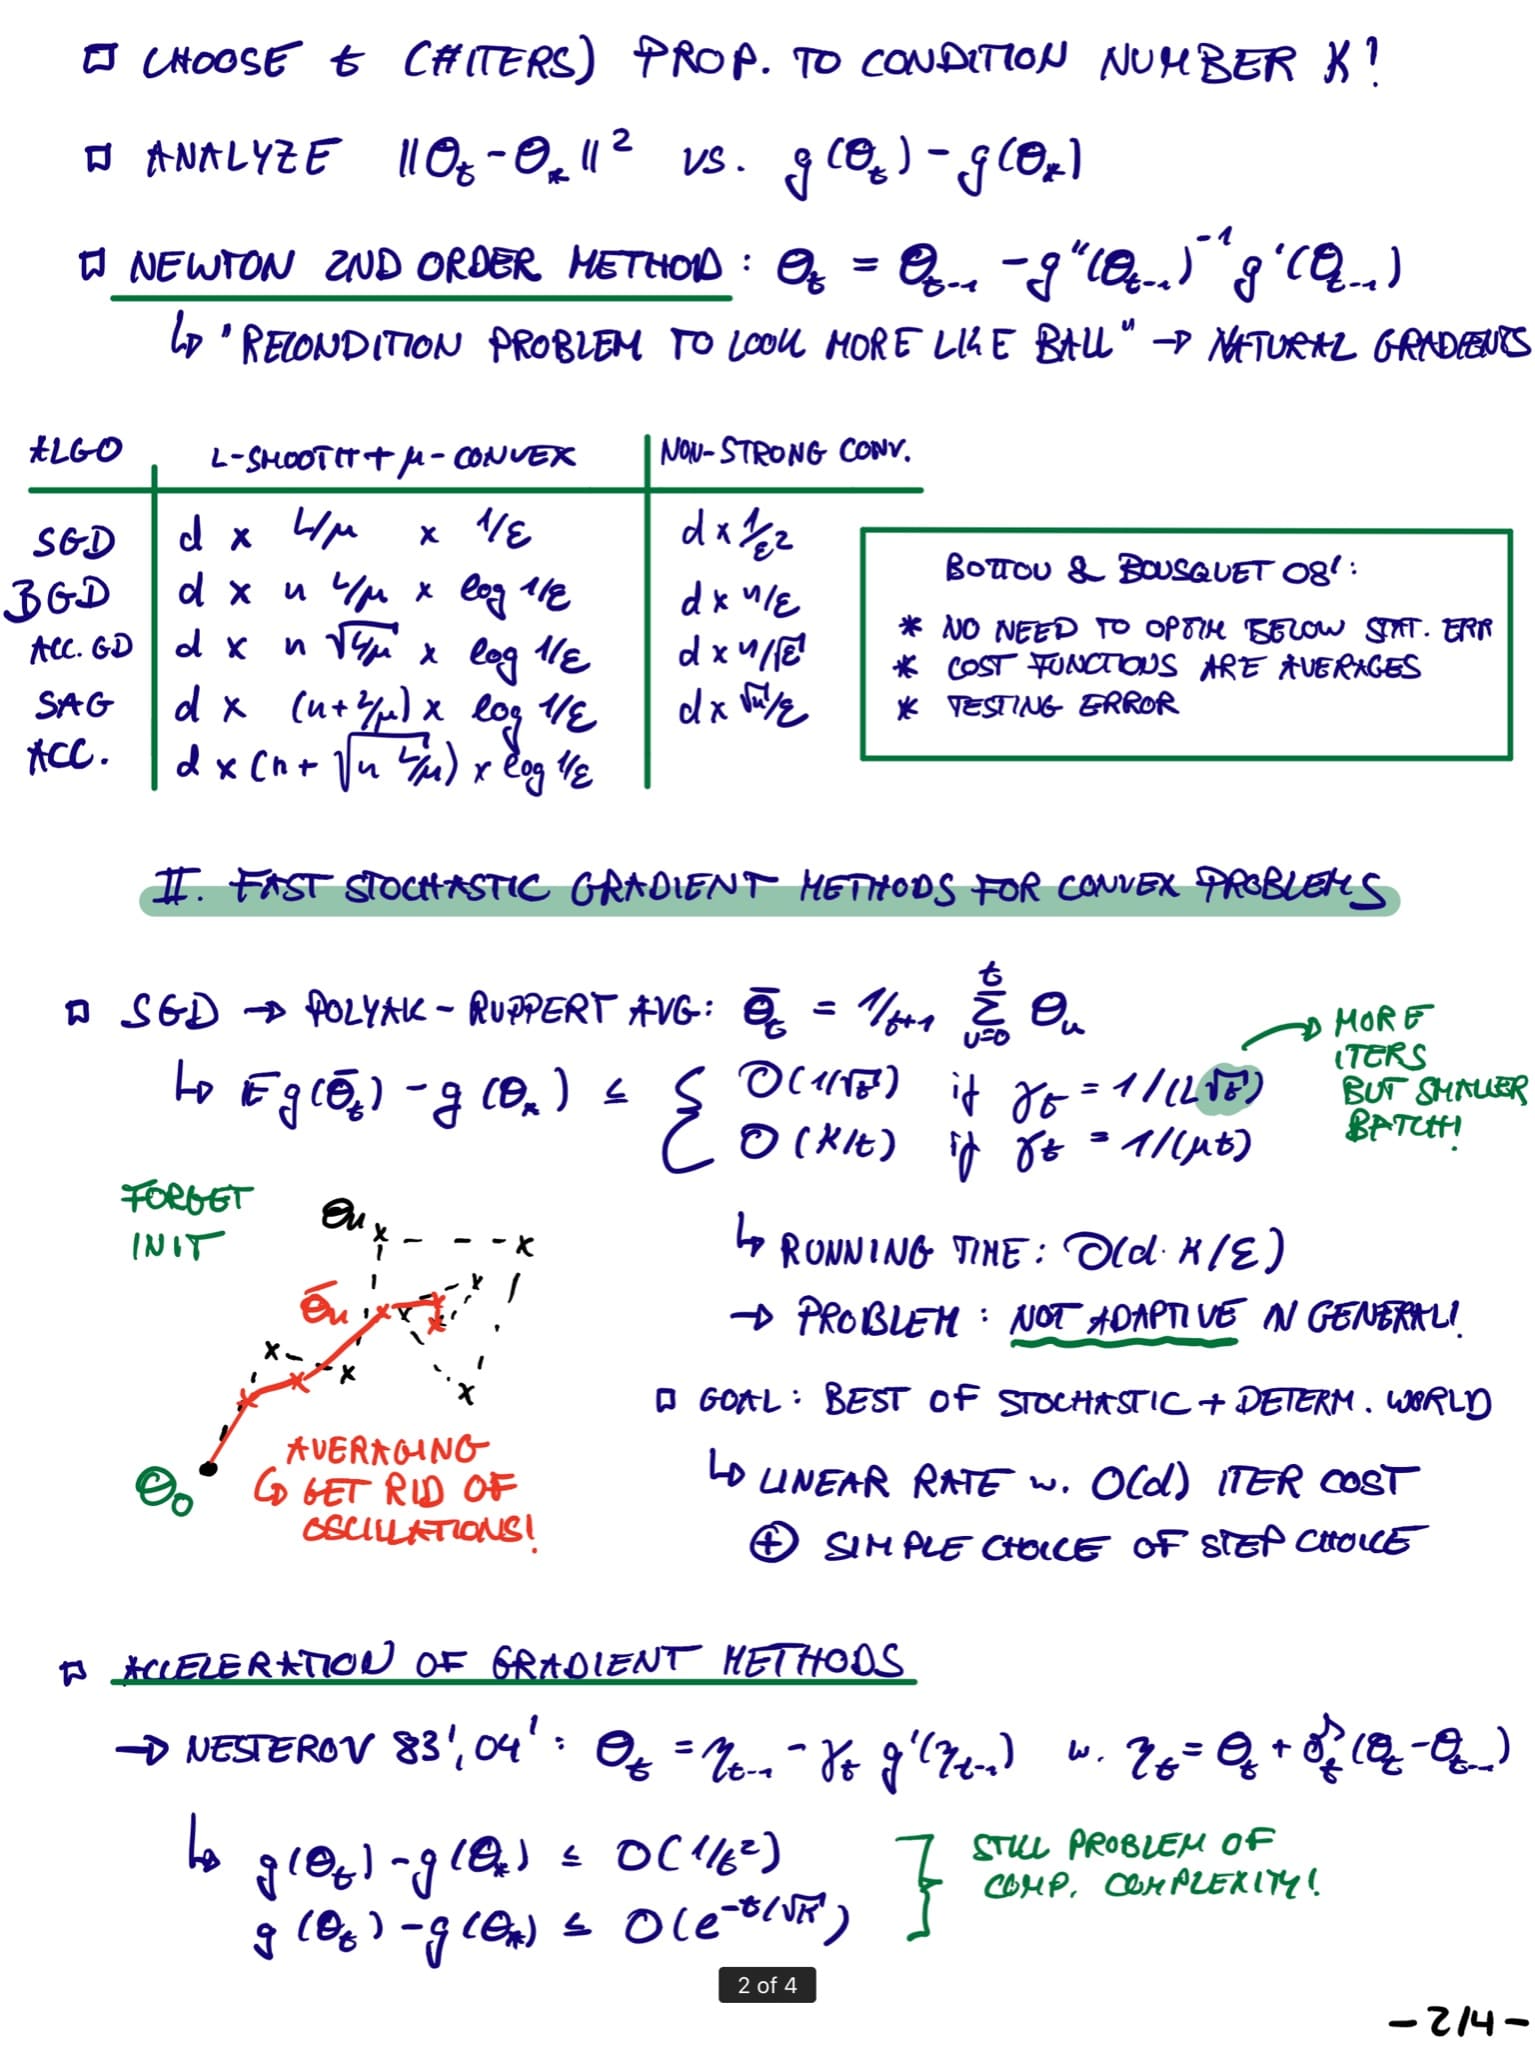 CHOOSE t (#ITERS) PROP. TO CONDITION NUMBER K!
ANALYZE ||θ_t - θ_*||² VS. g(θ_t) - g(θ_*)
NEWTON 2ND ORDER METHOD: θ_t = θ_{t-1} - g''(θ_{t-1})^{-1} g'(θ_{t-1})
↳ "RECONDITION PROBLEM TO LOOK MORE LIKE BALL" → NATURAL GRADIENTS
ALGO L-SMOOTH + μ-CONVEX NON-STRONG CONV.
SGD d x L/μ x 1/ε d x 1/ε²
BGD d x n L/μ x log 1/ε d x n/ε
ACC. GD d x n √(L/μ) x log 1/ε d x n/√ε
SAG d x (n + L/μ) x log 1/ε d x √n/ε
ACC. d x (n + √(n L/μ)) x log 1/ε
BOTTOU & BOUSQUET 08':
* NO NEED TO OPTIM BELOW STAT. ERR
* COST FUNCTIONS ARE AVERAGES
* TESTING ERROR
II. FAST STOCHASTIC GRADIENT METHODS FOR CONVEX PROBLEMS
SGD → POLYAK-RUPPERT AVG: θ̄_t = 1/t+1 Σ_{u=0}^t θ_u
↳ E g(θ̄_t) - g(θ_*) ≤ { O(1/√t) if γ_t = 1/(L√t)
O(K/t) if γ_t = 1/(μt)
MORE
ITERS
BUT SMALLER
BATCH!
FORGET
INIT
θ_u
θ̄_u
θ_0
AVERAGING
↳ GET RID OF
OSCILLATIONS!
↳ RUNNING TIME: O(d·K/ε)
→ PROBLEM: NOT ADAPTIVE IN GENERAL!
GOAL: BEST OF STOCHASTIC + DETERM. WORLD
↳ LINEAR RATE w. O(d) ITER COST
⊕ SIMPLE CHOICE OF STEP CHOICE
ACCELERATION OF GRADIENT METHODS
→ NESTEROV 83', 04': θ_t = η_{t-1} - γ_t g'(η_{t-1}) w. η_t = θ_t + δ_t(θ_t - θ_{t-1})
↳ g(θ_t) - g(θ_*) ≤ O(1/t²)
g(θ_t) - g(θ_*) ≤ O(e^{-t/√K})
STILL PROBLEM OF
COMP. COMPLEXITY!
2 of 4
-2/4-